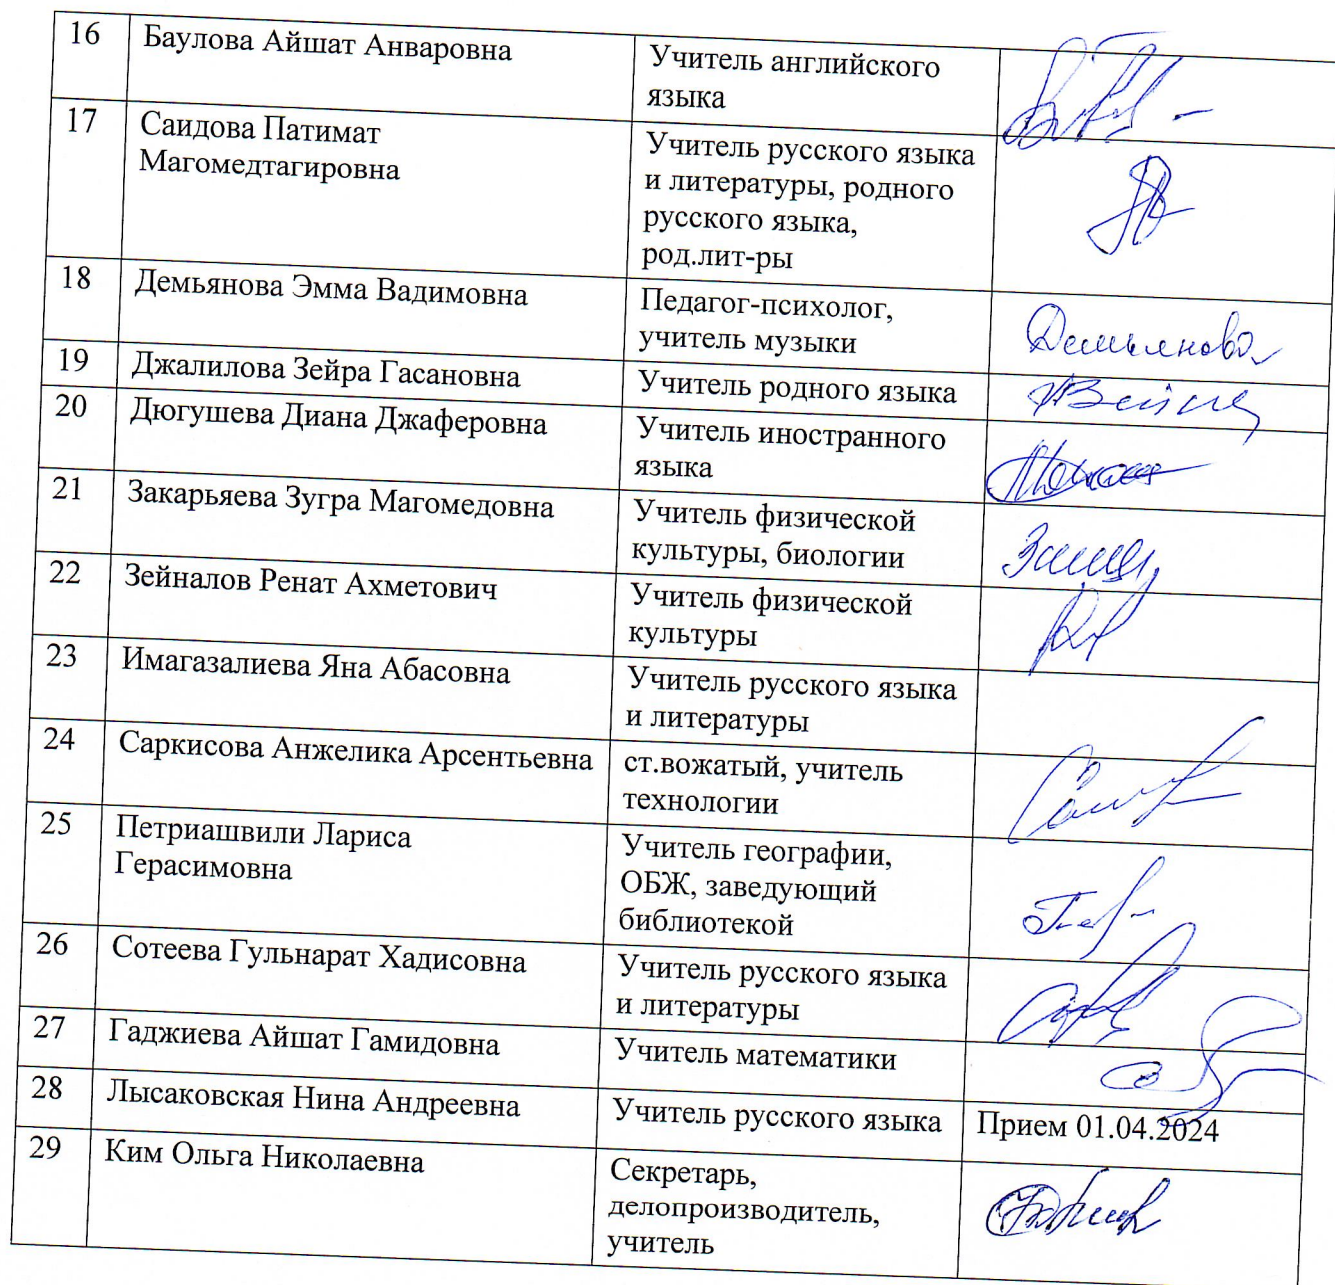 16 Баулова Айшат Анваровна Учитель английского
языка
17 Саидова Патимат
Магомедтагировна
Учитель русского языка
и литературы, родного
русского языка,
род.лит-ры
18 Демьянова Эмма Вадимовна Педагог-психолог,
учитель музыки
Демьянова
19 Джалилова Зейра Гасановна Учитель родного языка
20 Дюгушева Диана Джаферовна Учитель иностранного
языка
21 Закарьяева Зугра Магомедовна Учитель физической
культуры, биологии
22 Зейналов Ренат Ахметович Учитель физической
культуры
23 Имагазалиева Яна Абасовна Учитель русского языка
и литературы
24 Саркисова Анжелика Арсентьевна ст.вожатый, учитель
технологии
25 Петриашвили Лариса
Герасимовна
Учитель географии,
ОБЖ, заведующий
библиотекой
26 Сотеева Гульнарат Хадисовна Учитель русского языка
и литературы
27 Гаджиева Айшат Гамидовна Учитель математики
28 Лысаковская Нина Андреевна Учитель русского языка Прием 01.04.2024
29 Ким Ольга Николаевна Секретарь,
делопроизводитель,
учитель